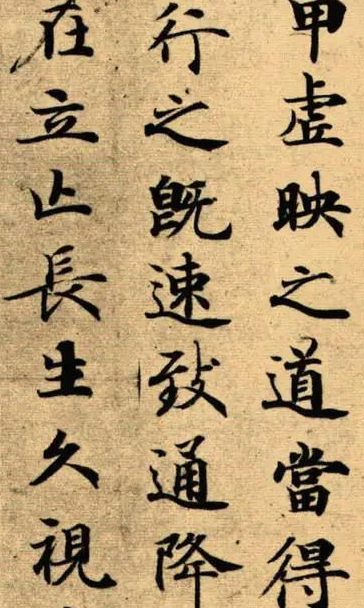 甲虛映之道當得
行之既速致通降
在立止長生久視